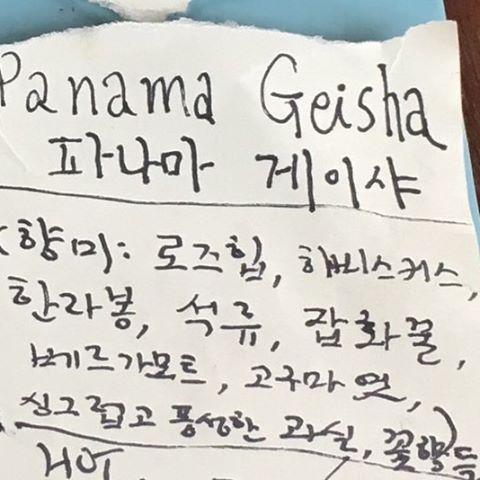 Panama Geisha
파나마 게이샤
(향미: 로즈힙, 히비스커스,
한라봉, 석류, 잡화꿀,
베르가모트, 고구마엿,
싱그럽고 풍성한 과실, 꽃향) 등
HOT